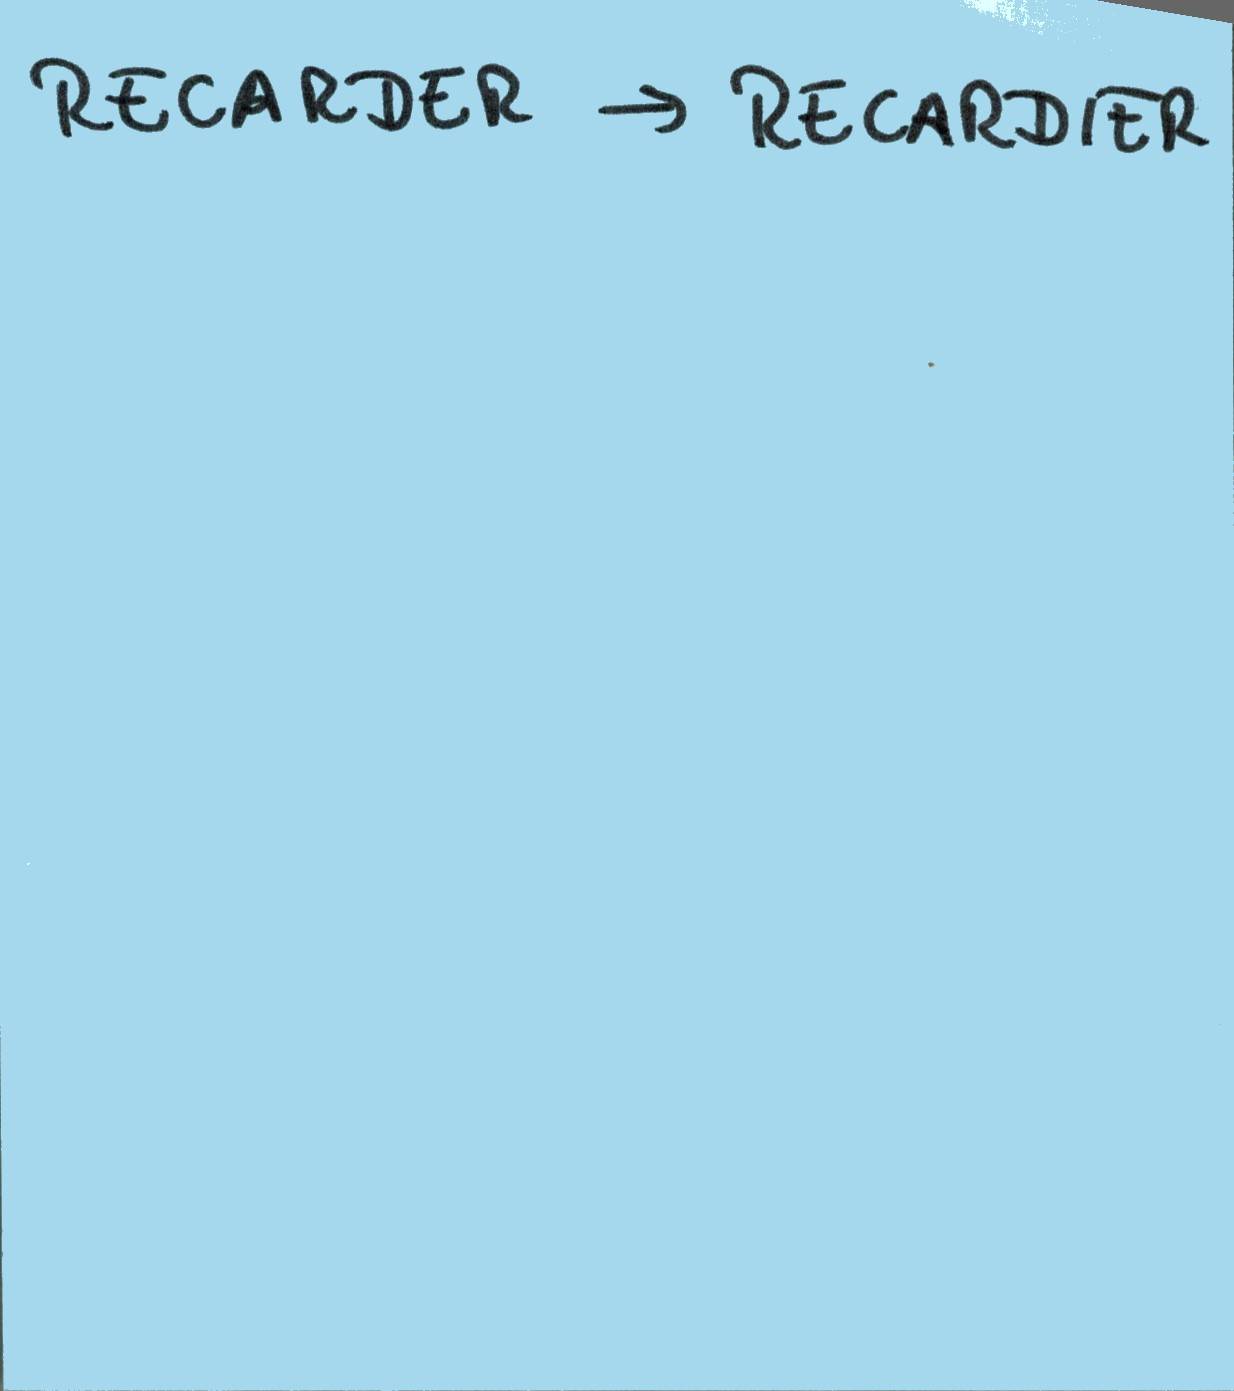 RECARDER → RECARDIER